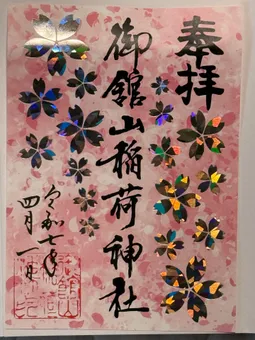 奉拝
御舘山稲荷神社
令和七年
四月一日